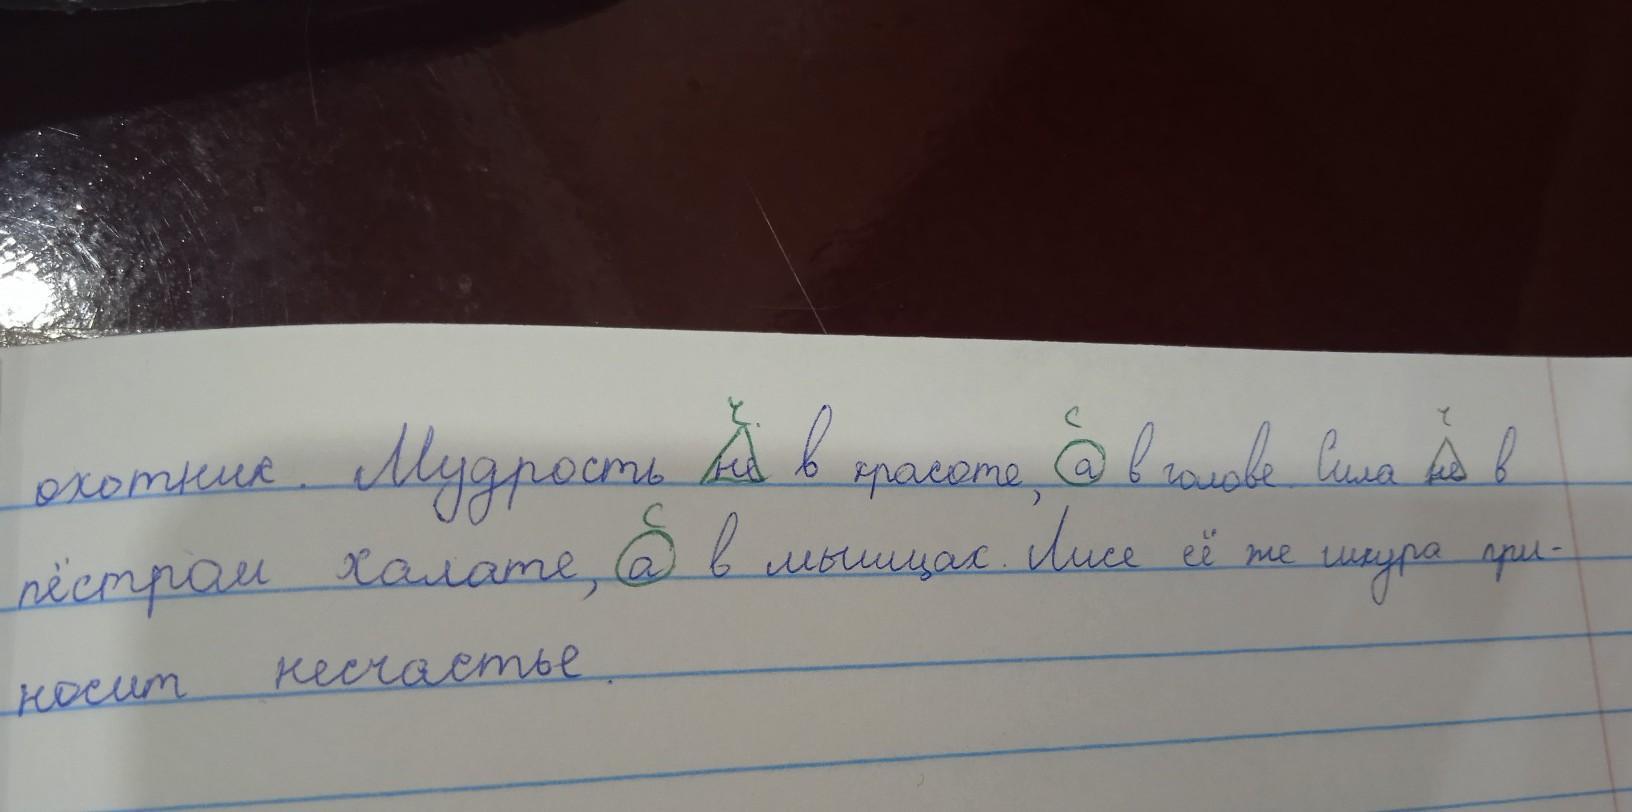 ч с ч
охотник. Мудрость не в красоте, а в голове. Сила не в
с
пёстром халате, а в мышцах. Лисе её же шкура при-
носит несчастье.